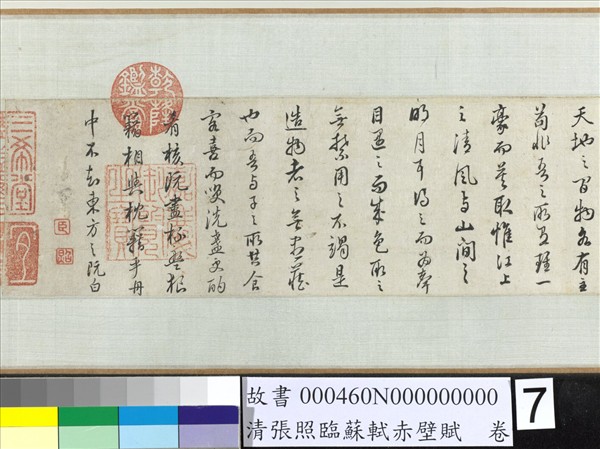 天地之間物各有主
苟非吾之所有雖一
豪而莫取惟江上
之清風與山間之
明月耳得之而為聲
目遇之而成色取之
無禁用之不竭是
造物者之無盡藏
也而吾與子之所共食
客喜而笑洗盞更酌
肴核既盡杯盤狼
籍相與枕藉乎舟
中不知東方之既白
臣照
乾隆鑑賞
三希堂
故書 000460N000000000
清張照臨蘇軾赤壁賦 卷
7